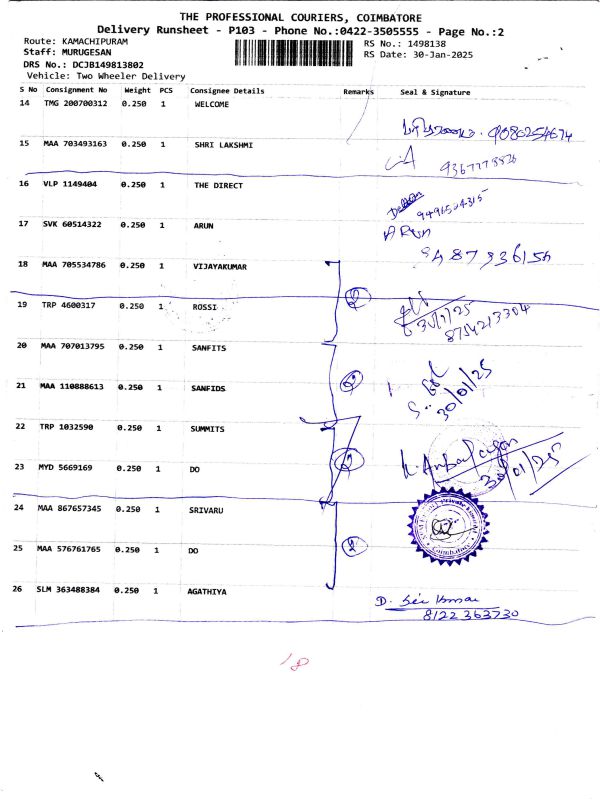 THE PROFESSIONAL COURIERS, COIMBATORE
Delivery Runsheet - P103 - Phone No.:0422-3505555 - Page No.:2
Route: KAMACHIPURAM
RS No.: 1498138
Staff: MURUGESAN
RS Date: 30-Jan-2025
DRS No.: DCJB149813802
Vehicle: Two Wheeler Delivery
S No Consignment No Weight PCS Consignee Details Remarks Seal & Signature
14 TMG 200700312 0.250 1 WELCOME
15 MAA 703493163 0.250 1 SHRI LAKSHMI
16 VLP 1149404 0.250 1 THE DIRECT
17 SVK 60514322 0.250 1 ARUN ARUN
18 MAA 705534786 0.250 1 VIJAYAKUMAR
19 TRP 4600317 0.250 1 ROSSI
8754213304
20 MAA 707013795 0.250 1 SANFITS
21 MAA 110888613 0.250 1 SANFIDS
30/01/25
22 TRP 1032590 0.250 1 SUMMITS
23 MYD 5669169 0.250 1 DO
30/01/25
24 MAA 867657345 0.250 1 SRIVARU
Coimbatore
25 MAA 576761765 0.250 1 DO
26 SLM 363488384 0.250 1 AGATHIYA
8122363730